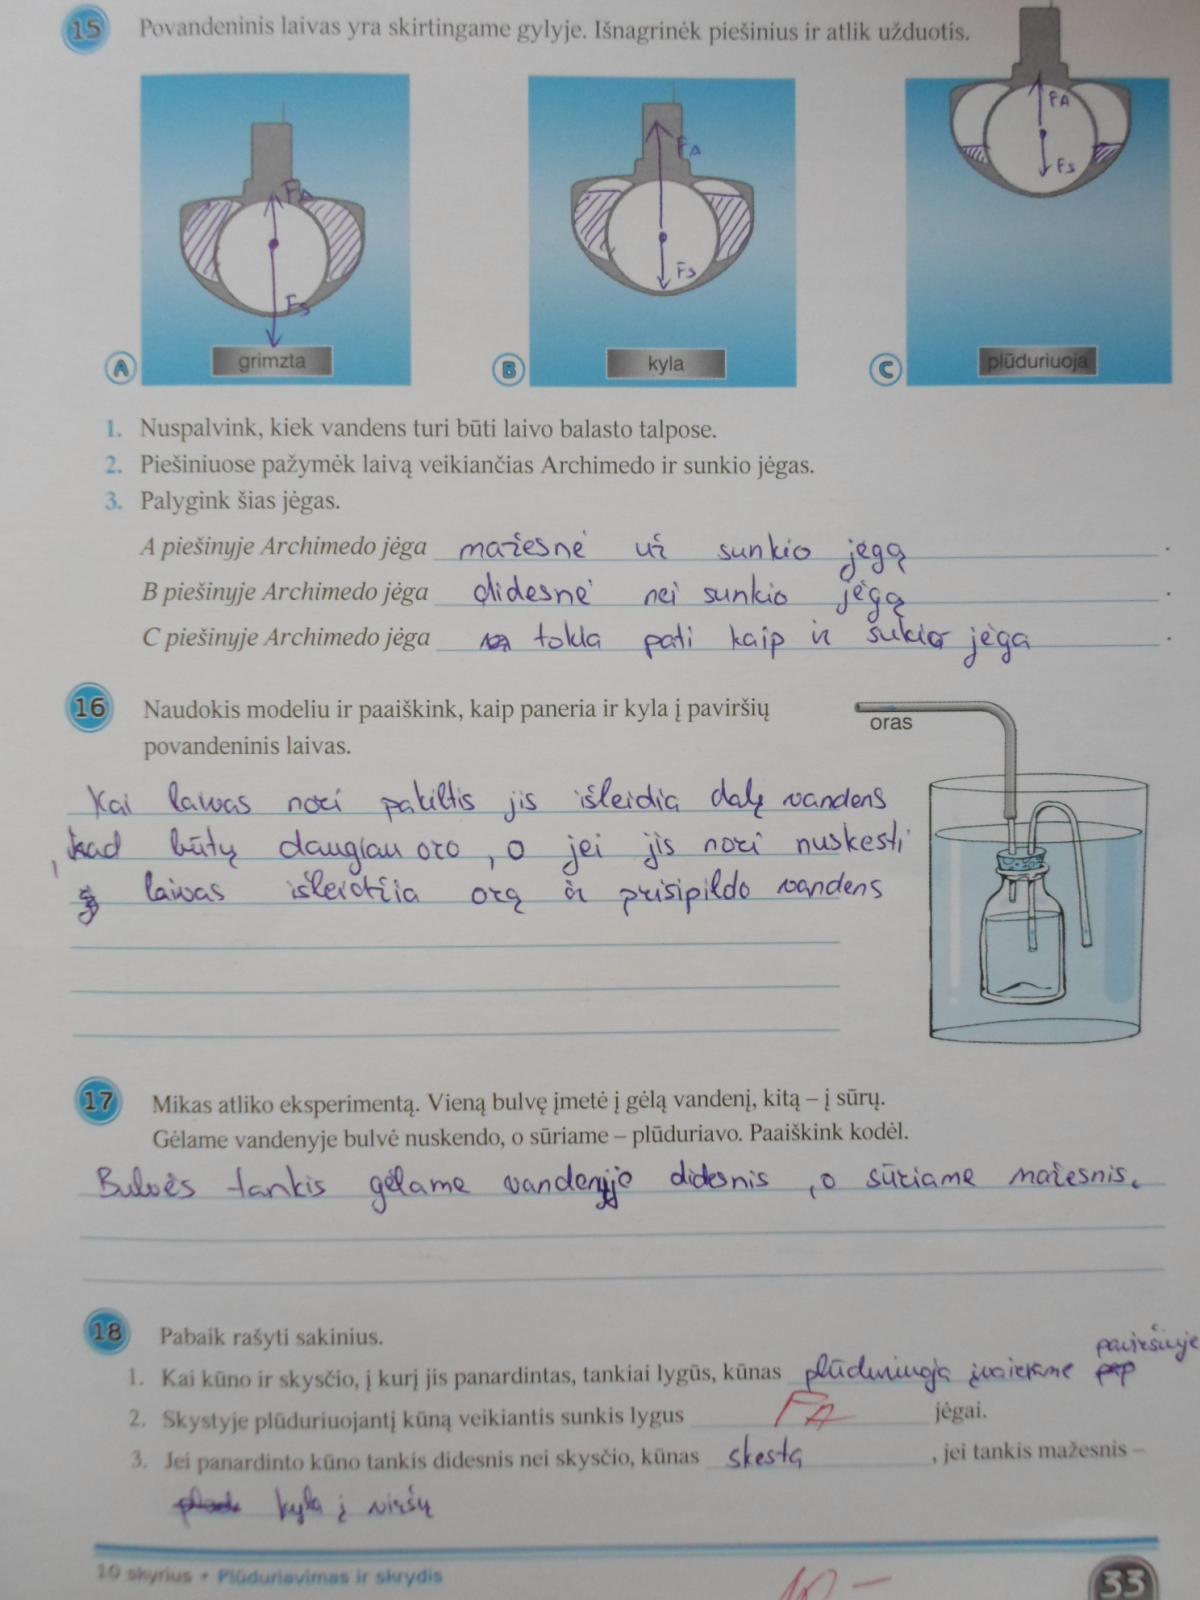 15 Povandeninis laivas yra skirtingame gylyje. Išnagrinėk piešinius ir atlik užduotis.
FA
FS
A grimzta
FA
FS
B kyla
FA
FS
C plūduriuoja
1. Nuspalvink, kiek vandens turi būti laivo balasto talpose.
2. Piešiniuose pažymėk laivą veikiančias Archimedo ir sunkio jėgas.
3. Palygink šias jėgas.
A piešinyje Archimedo jėga mažesnė už sunkio jėgą.
B piešinyje Archimedo jėga didesnė nei sunkio jėgą.
C piešinyje Archimedo jėga tokia pati kaip ir sukio jėga.
16 Naudokis modeliu ir paaiškink, kaip paneria ir kyla į paviršių
povandeninis laivas.
oras
Kai laivas nori pakiltis jis išleidia dalį vandens
, kad būtų daugiau oro, o jei jis nori nuskesti
laivas išleidžia orą ir prisipildo vandens
17 Mikas atliko eksperimentą. Vieną bulvę įmetė į gėlą vandenį, kitą – į sūrų.
Gėlame vandenyje bulvė nuskendo, o sūriame – plūduriavo. Paaiškink kodėl.
Bulvės tankis gėlame vandenyje didesnis, o sūriame mažesnis.
18 Pabaik rašyti sakinius.
paviršiuje
1. Kai kūno ir skysčio, į kurį jis panardintas, tankiai lygūs, kūnas plūduriuoja
2. Skystyje plūduriuojantį kūną veikiantis sunkis lygus FA jėgai.
3. Jei panardinto kūno tankis didesnis nei skysčio, kūnas skesta, jei tankis mažesnis –
kyla į viršų
10 skyrius • Plūduriavimas ir skrydis
10 –
33